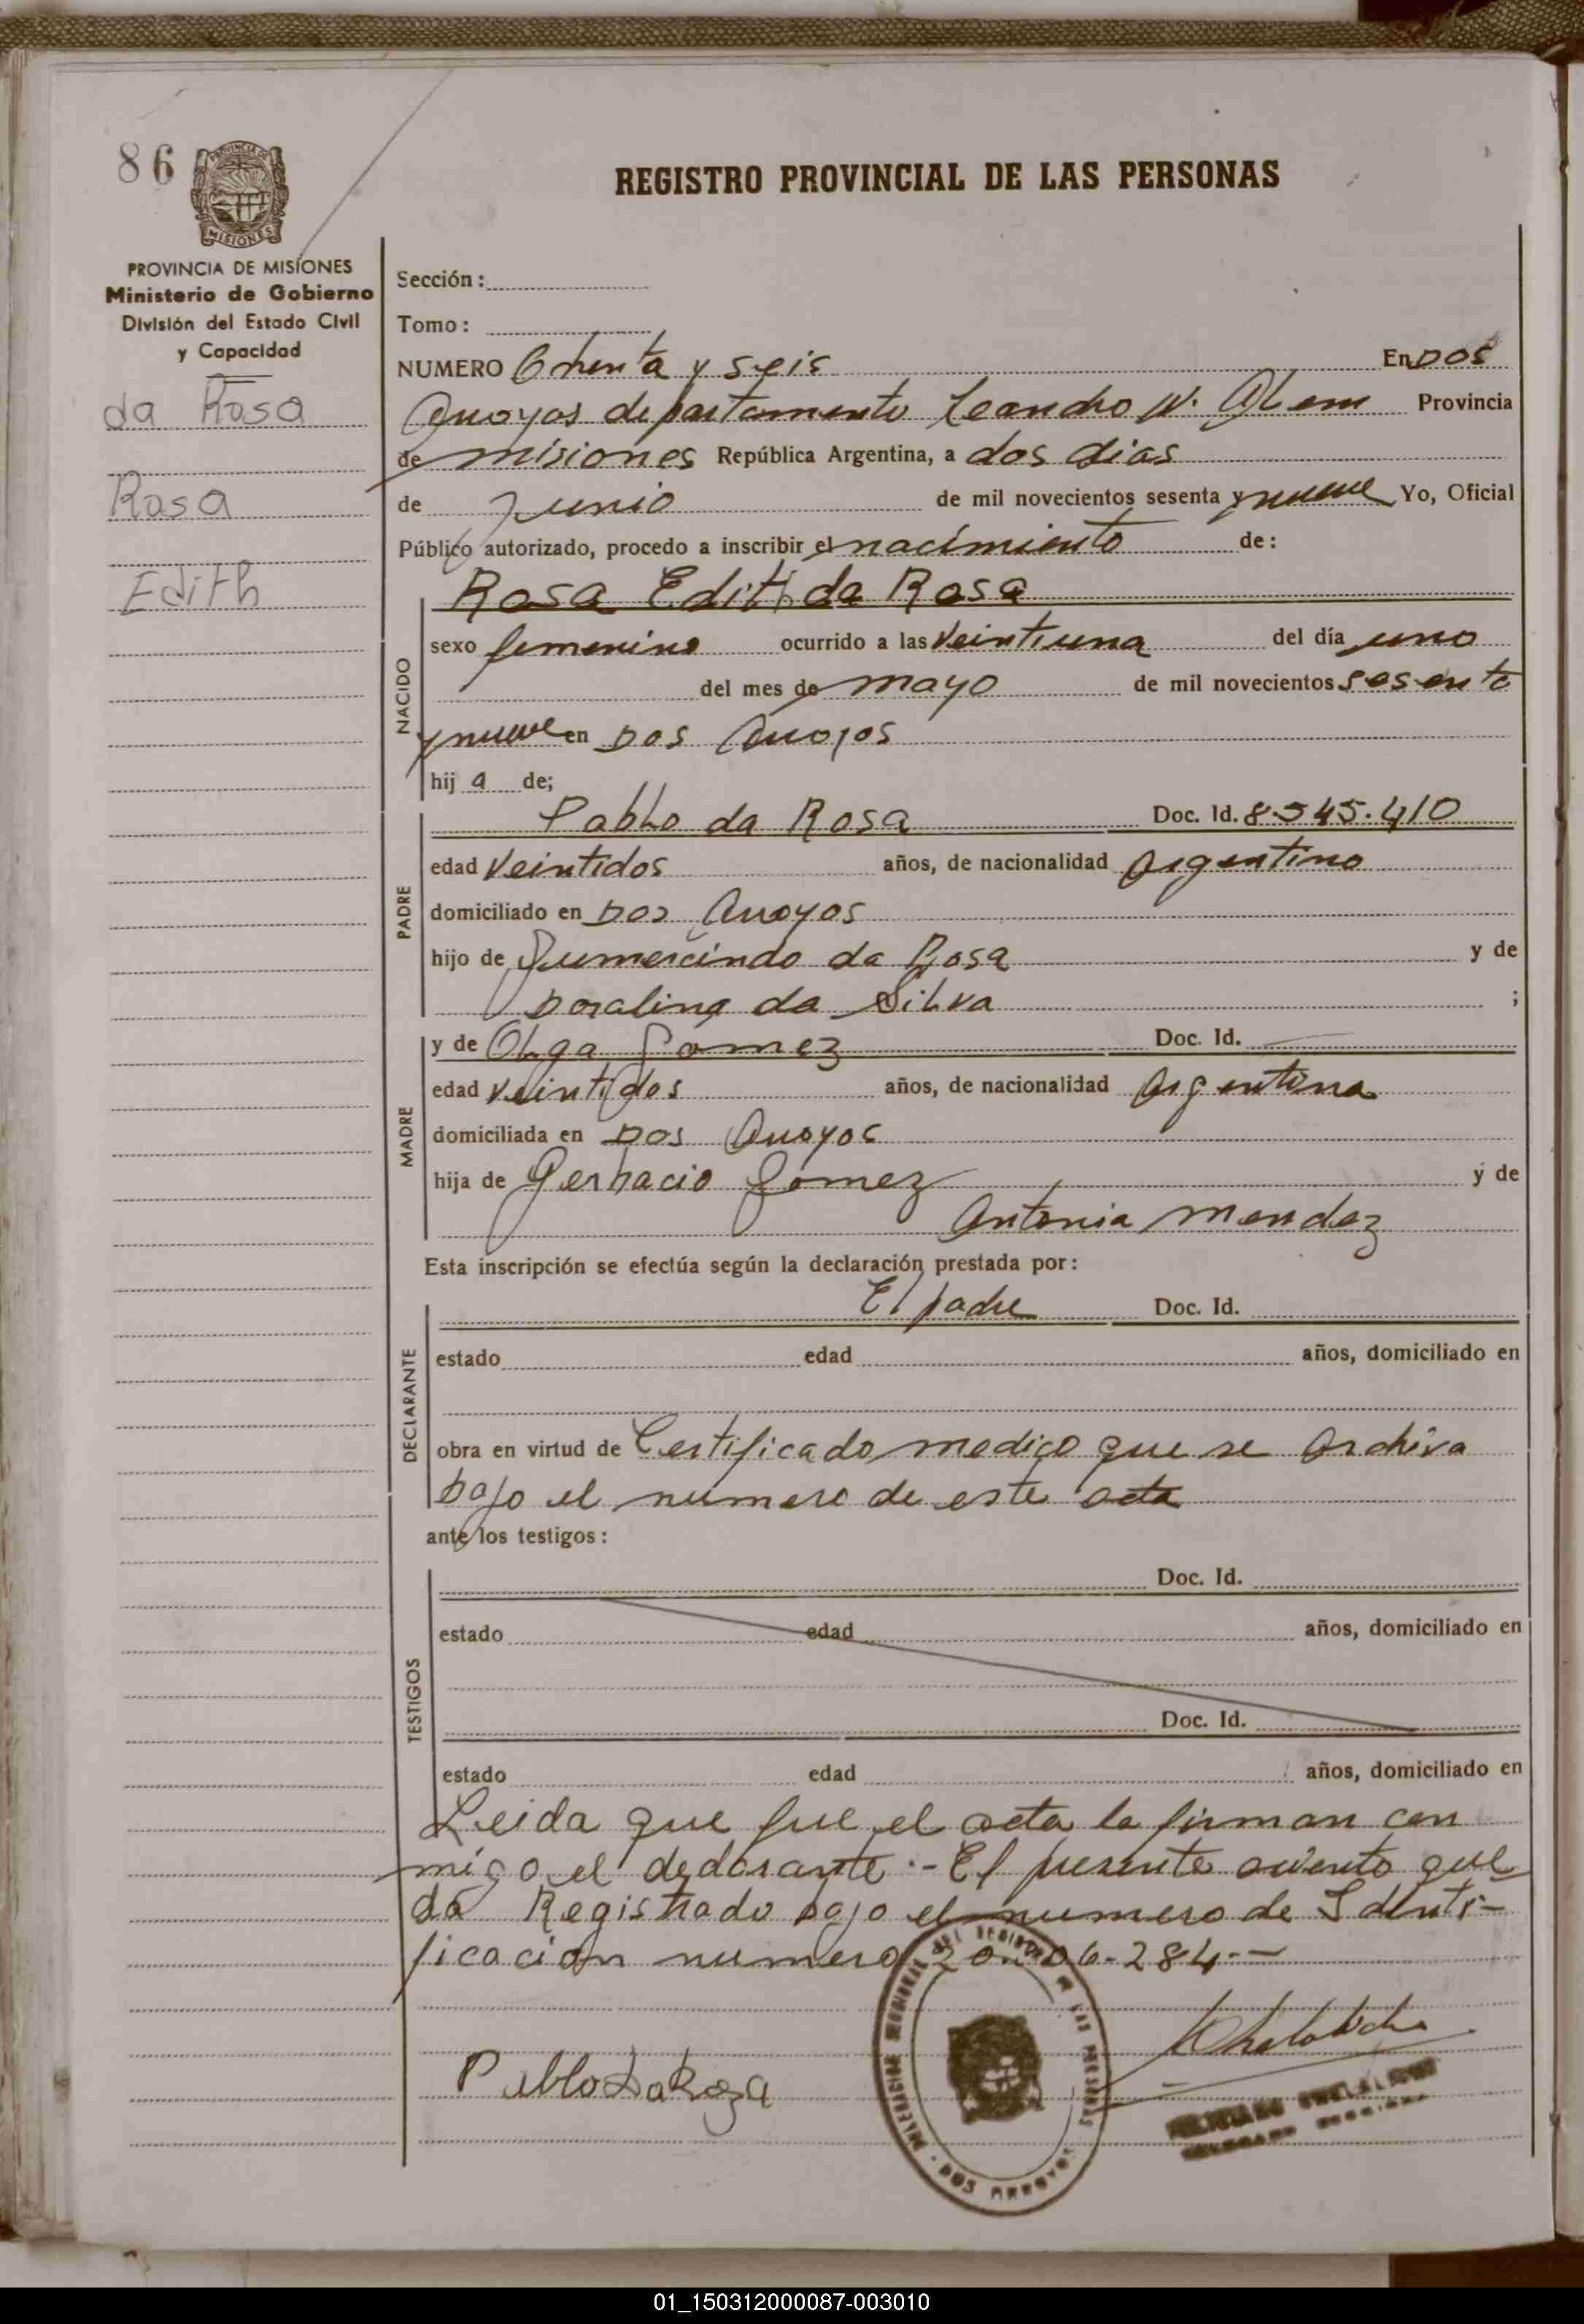 86
PROVINCIA DE
MISIONES
REGISTRO PROVINCIAL DE LAS PERSONAS
PROVINCIA DE MISIONES
Ministerio de Gobierno
División del Estado Civil
y Capacidad
da Rosa
Rosa
Edith
Sección:
Tomo:
NUMERO Ohenta y seis En Dos
Arroyos departamento Leandro N. Alem Provincia
de misiones República Argentina, a dos dias
de Junio de mil novecientos sesenta y nueve Yo, Oficial
Público autorizado, procedo a inscribir el nacimiento de:
Rosa Edith da Rosa
NACIDO
sexo femenino ocurrido a las Veintiuna del día uno
del mes de mayo de mil novecientos sesenta
y nueve en Dos Arroyos
hij a de;
PADRE
Pablo da Rosa Doc. Id. 8.545.410
edad Veintidos años, de nacionalidad Argentino
domiciliado en Dos Arroyos
hijo de Gumercindo da Rosa y de
Doralina da Silva ;
MADRE
y de Olga Gomez Doc. Id.
edad Veintidos años, de nacionalidad Argentina
domiciliada en Dos Arroyos
hija de Gervacio Gomez y de
Antonia Mendez
Esta inscripción se efectúa según la declaración prestada por:
DECLARANTE
El padre Doc. Id.
estado edad años, domiciliado en
obra en virtud de Certificado medico que se Archiva
bajo el numero de este acta
ante los testigos:
TESTIGOS
Doc. Id.
estado edad años, domiciliado en
Doc. Id.
estado edad años, domiciliado en
Leida que fue el acta la firman con
migo el declarante .- El presente asiento que
da Registrado bajo el numero de Identi-
ficación numero 20.206-284--
Pablo da Roza
DOS ARROYOS
01_150312000087-003010